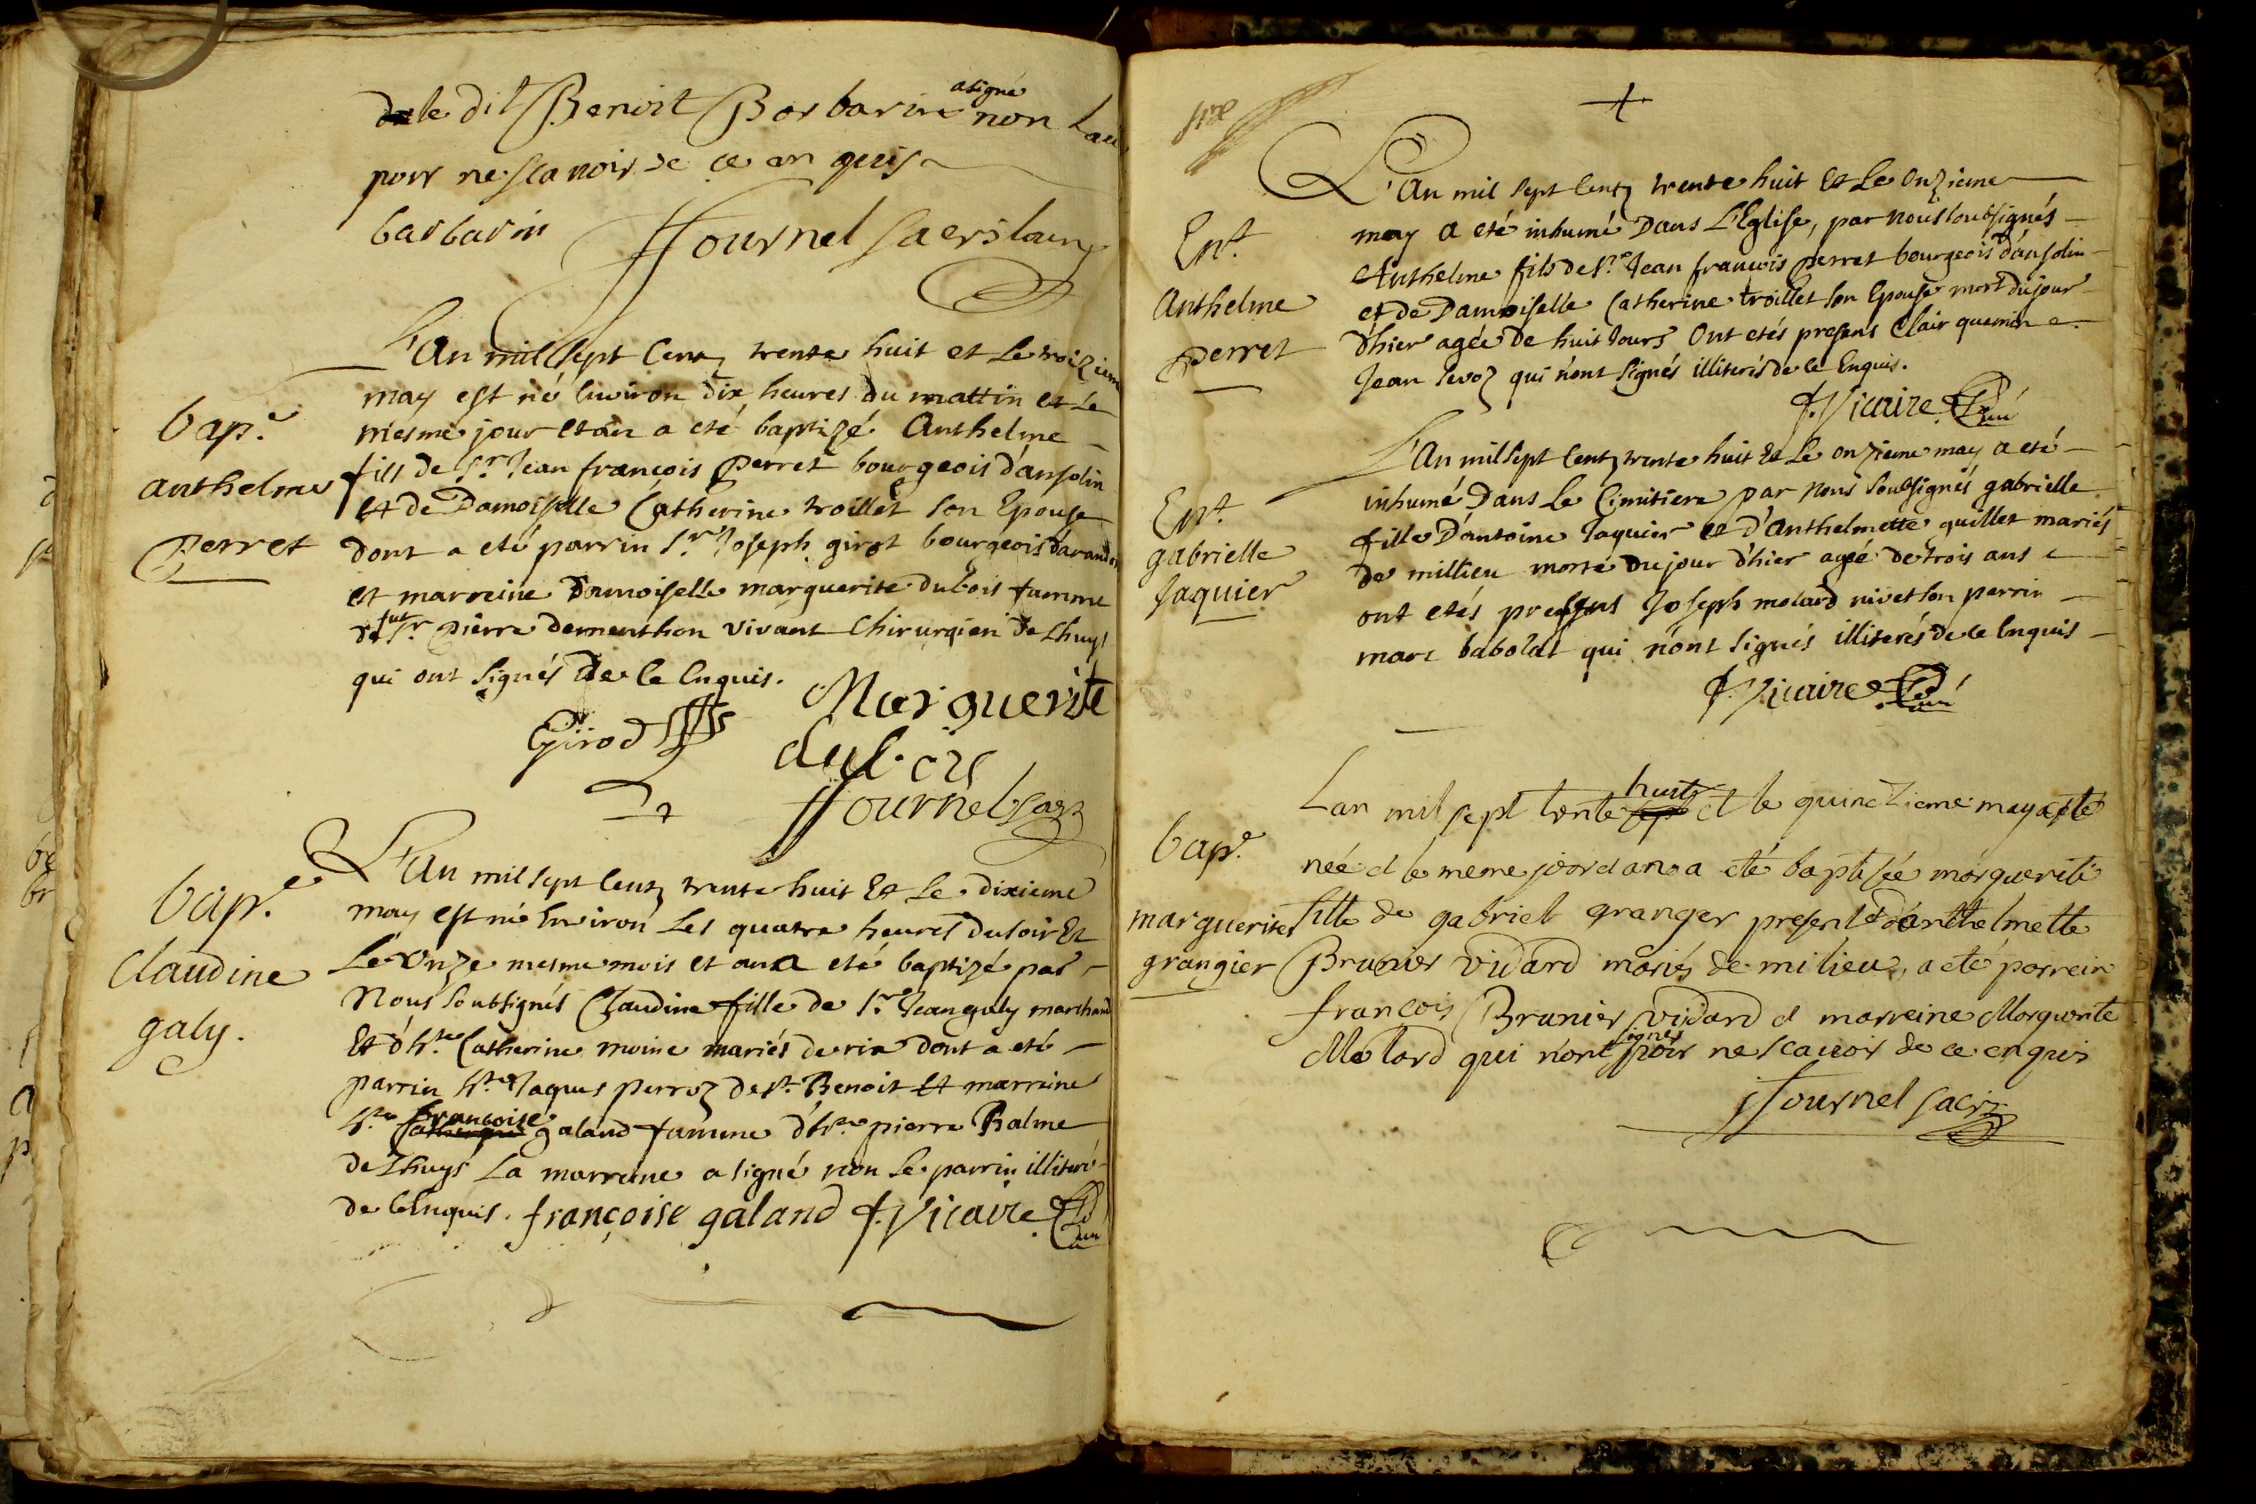 le dit Benoit Barbarin a signé non
pour ne scavoir de ce en quis
barbarin ffournel
L'An mil sept Centz trente huit et Le troizieme
may est né Environ dix heures du mattin et Le
mesme jour et an a eté baptizé Anthelme
fils de Sr. Jean françois Perret bourgeois d'ansolin
et de Damoiselle Catherine troillet son Epouse
dont a eté parrin Sr. Joseph girot bourgeois d'arandon
et marreine Damoiselle marguerite dubois famme
de Sr. Pierre dementhon vivant Chirurgien de Lhuys
qui ont Signés de Ce Enquis.
bap.e
anthelme
Perret
Girod Marguerite
dubois
ffournel
L'An mil sept Centz trente huit Et Le dixieme
may est né Environ Les quatre heures du soir Et
Le Onze mesme mois et an a eté baptizé par
Nous soubsignés Claudine fille de Sr. Jean galy marchand
Et d'h.te Catherine moine mariés de rix dont a eté
parrin h.te Jaques perroz de St. Benoit Et marreine
h.te francoise galand famme d'h.te pierre Balme
de Lhuys La marreine a signé non Le parrin illiteré
de Ce Enquis. françoise galand f. Vicaire
bap.e
Claudine
galy.
L'An mil sept Centz trente huit Et Le Onzieme
may a eté inhumé Dans L'Eglise, par nous soubsignés
Anthelme fils de Sr. Jean francois Perret bourgeois d'ansolin
et de Damoiselle Catherine troillet son Epouse mort du jour
d'hier agée de huit Jours Ont etés presens Clair quemin e.
Jean Sevoz qui n'ont signés illiterés de Ce Enquis.
f. Vicaire Curé
Ent.
Anthelme
Perret
L'An mil sept Centz trente huit Et Le onzieme may a eté
inhumé Dans Le Cimitiere par Nous Soubsignés gabrielle
fille D'antoine Jaquier et d'Anthelmette quillet mariés
de millieu morte Du jour d'hier agée de trois ans
ont etés presens Joseph molard nivet son perrin
marc babolat qui n'ont signés illiterés de Ce Enquis
f. Vicaire Curé
Ent.
gabrielle
Jaquier
Lan mil sept trente huit et le quinczieme may a eté
née et le meme jour et an a eté baptisée marguerite
fille de gabriel granger present et d'anthelmette
Brunier vidard mariés de milieu, a eté parrein
francois Brunier vidard et marreine Marguerite
Molard qui n'ont signés pour ne scavoir de ce enquis
ffournel
bap.e
marguerite
grangier